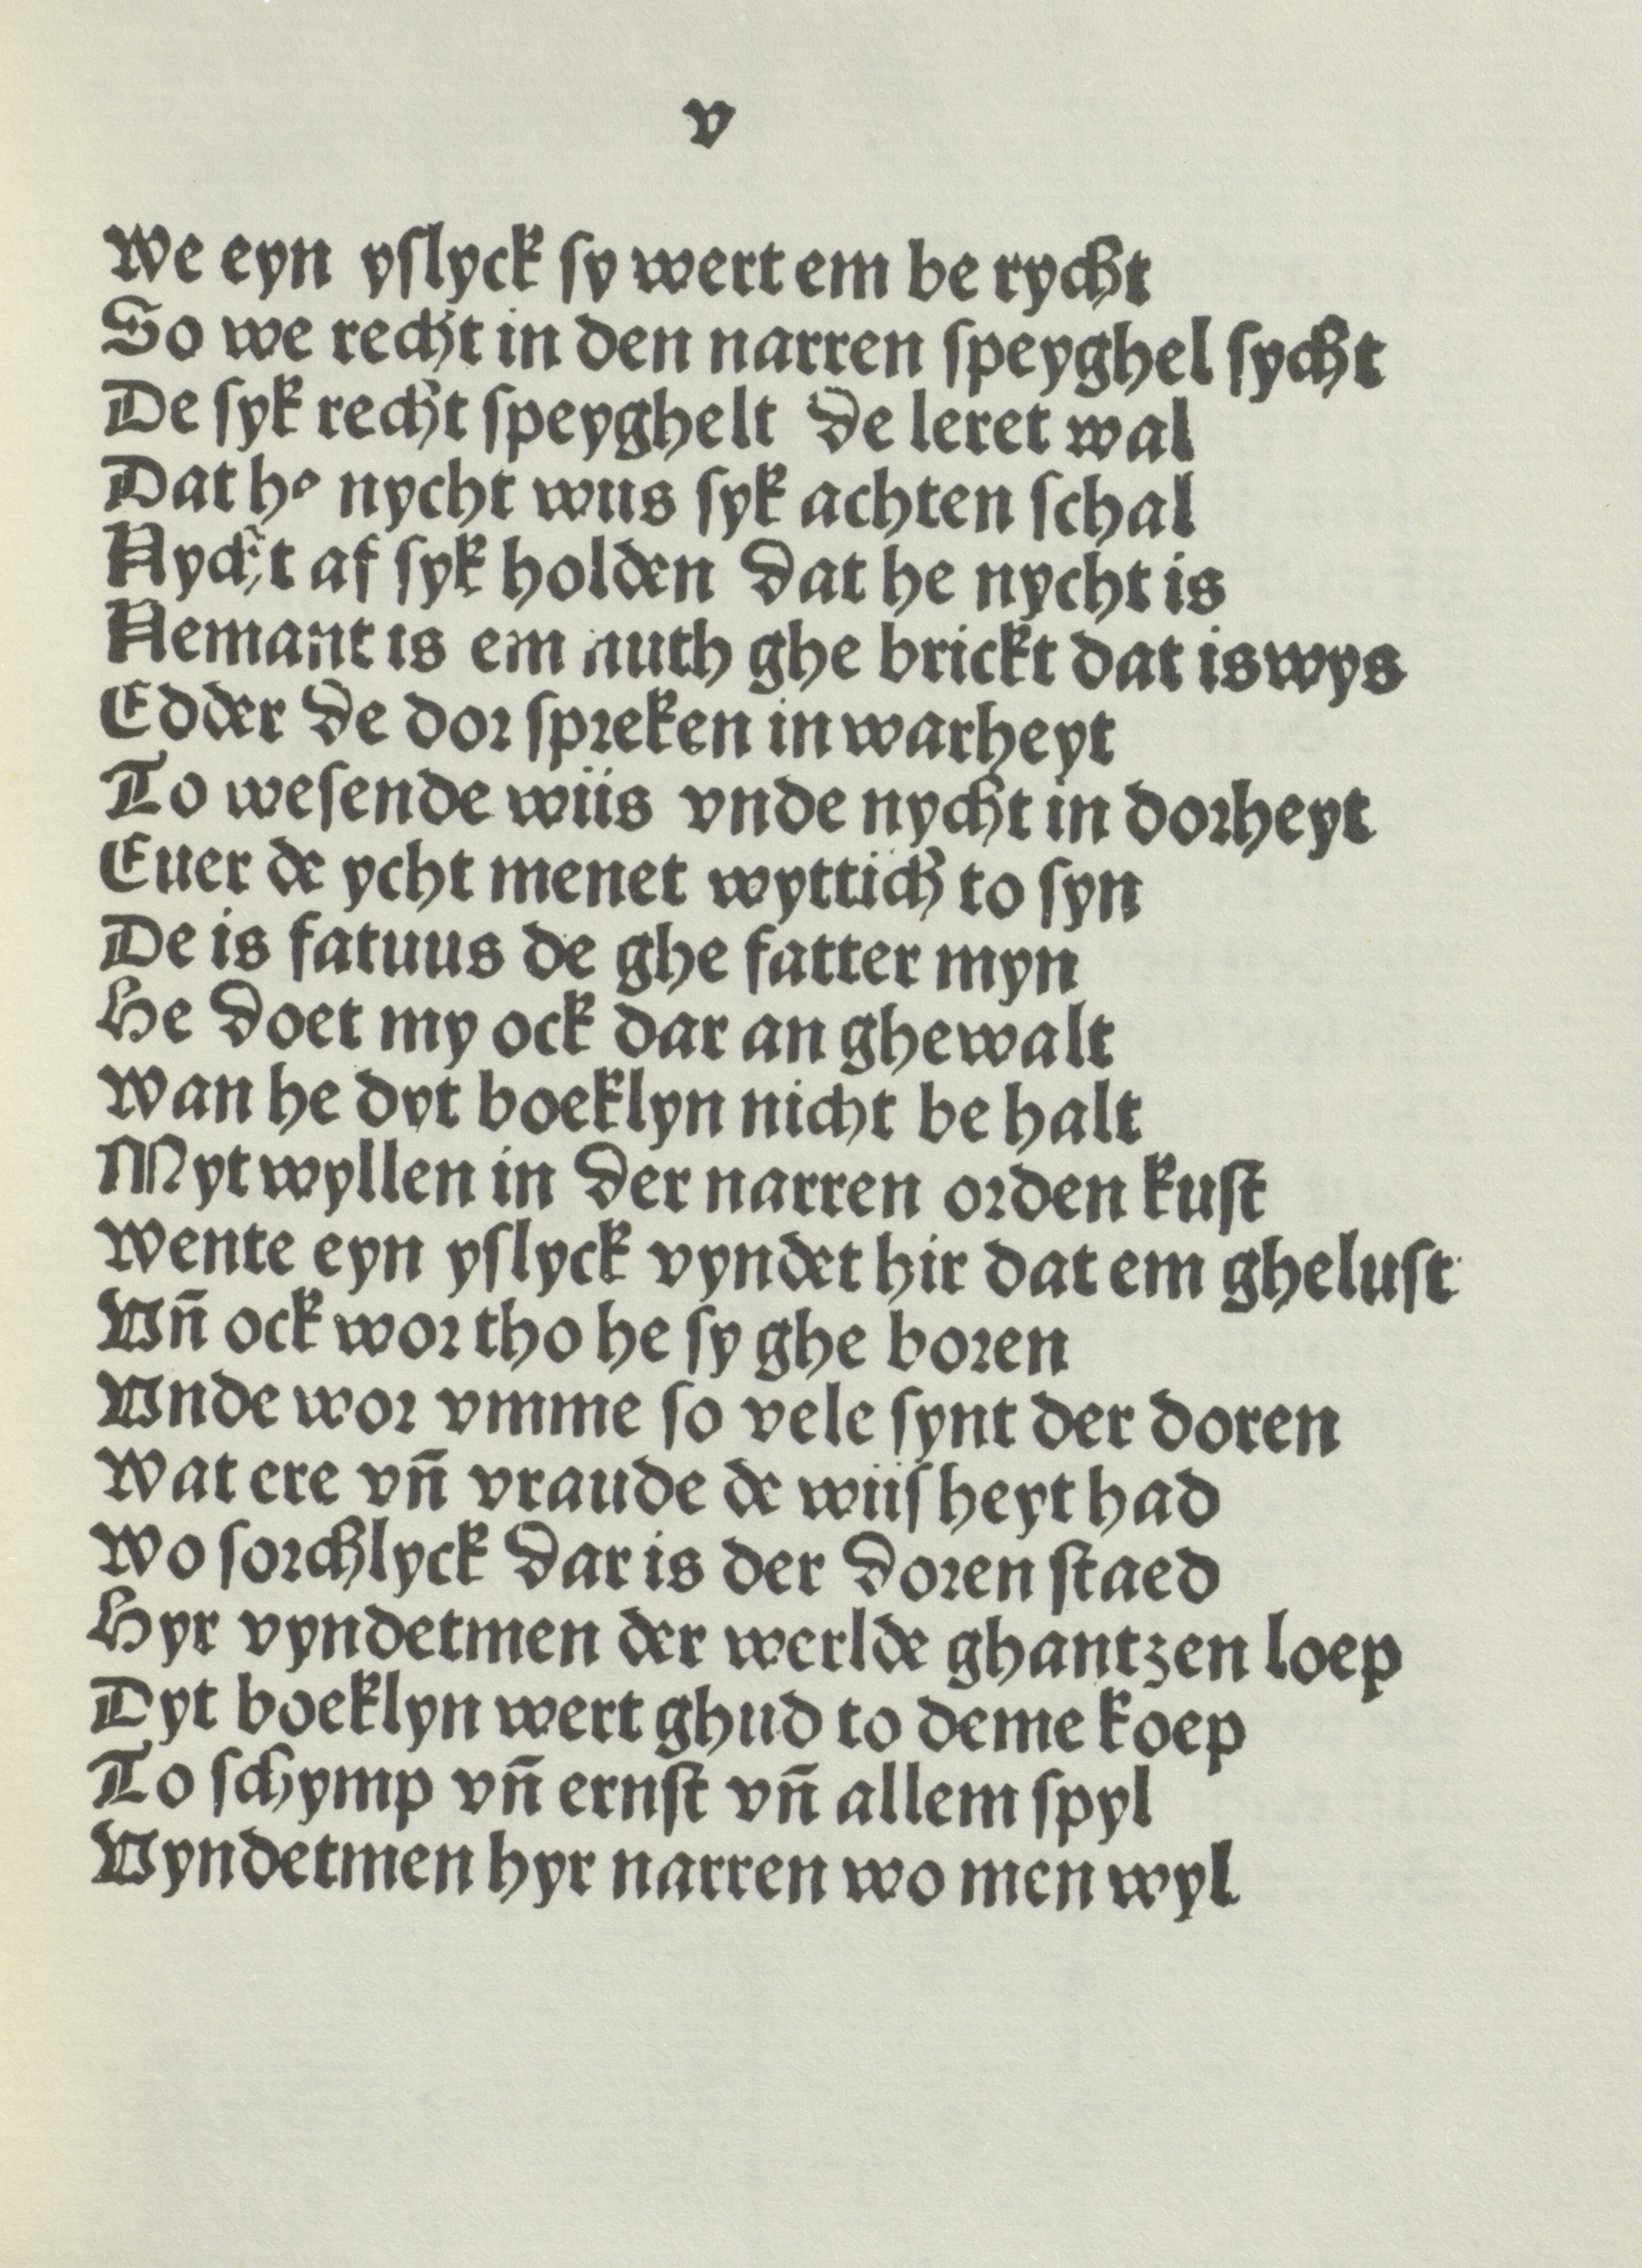 v
We eyn yſlyck ſy wert em be rycht
So we recht in den narren ſpeyghel ſycht
De ſyk recht ſpeyghelt de leret wal
Dat he nycht wus ſyk achten ſchal
Nycht af ſyk holden dat he nycht is
Nemant is em nuth ghe brickt dat is wys
Edder de dor ſpreken in warheyt
To weſende wiis vnde nycht in dorheyt
Euer de ycht menet wyttich to ſyn
De is fatuus de ghe fatter myn
He doet my ock dar an ghewalt
Wan he dyt boeklyn nicht be halt
Myt wyllen in der narren orden kuſt
Wente eyn yſlyck vyndet hir dat em gheluſt
Vn̄ ock wor tho he ſy ghe boren
Vnde wor vmme ſo vele ſynt der doren
Wat ere vn̄ vraude de wiiſ heyt had
Wo ſorchlyck dar is der doren ſtaed
Hyr vyndetmen der werlde ghantzen loep
Dyt boeklyn wert ghud to deme koep
To ſchymp vn̄ ernſt vn̄ allem ſpyl
Vyndetmen hyr narren wo men wyl